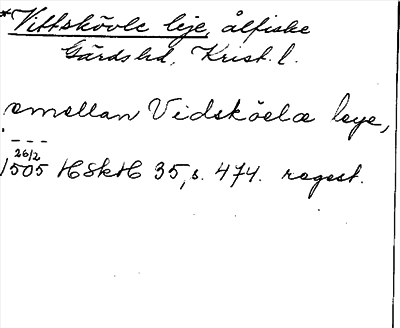 *Vittskövle leje, ålfiske
Gärds hd, Krist. l.
emellan Vidsköelæ leye,
- - -
26/2
1505 HSkH 35, s. 474. regest.